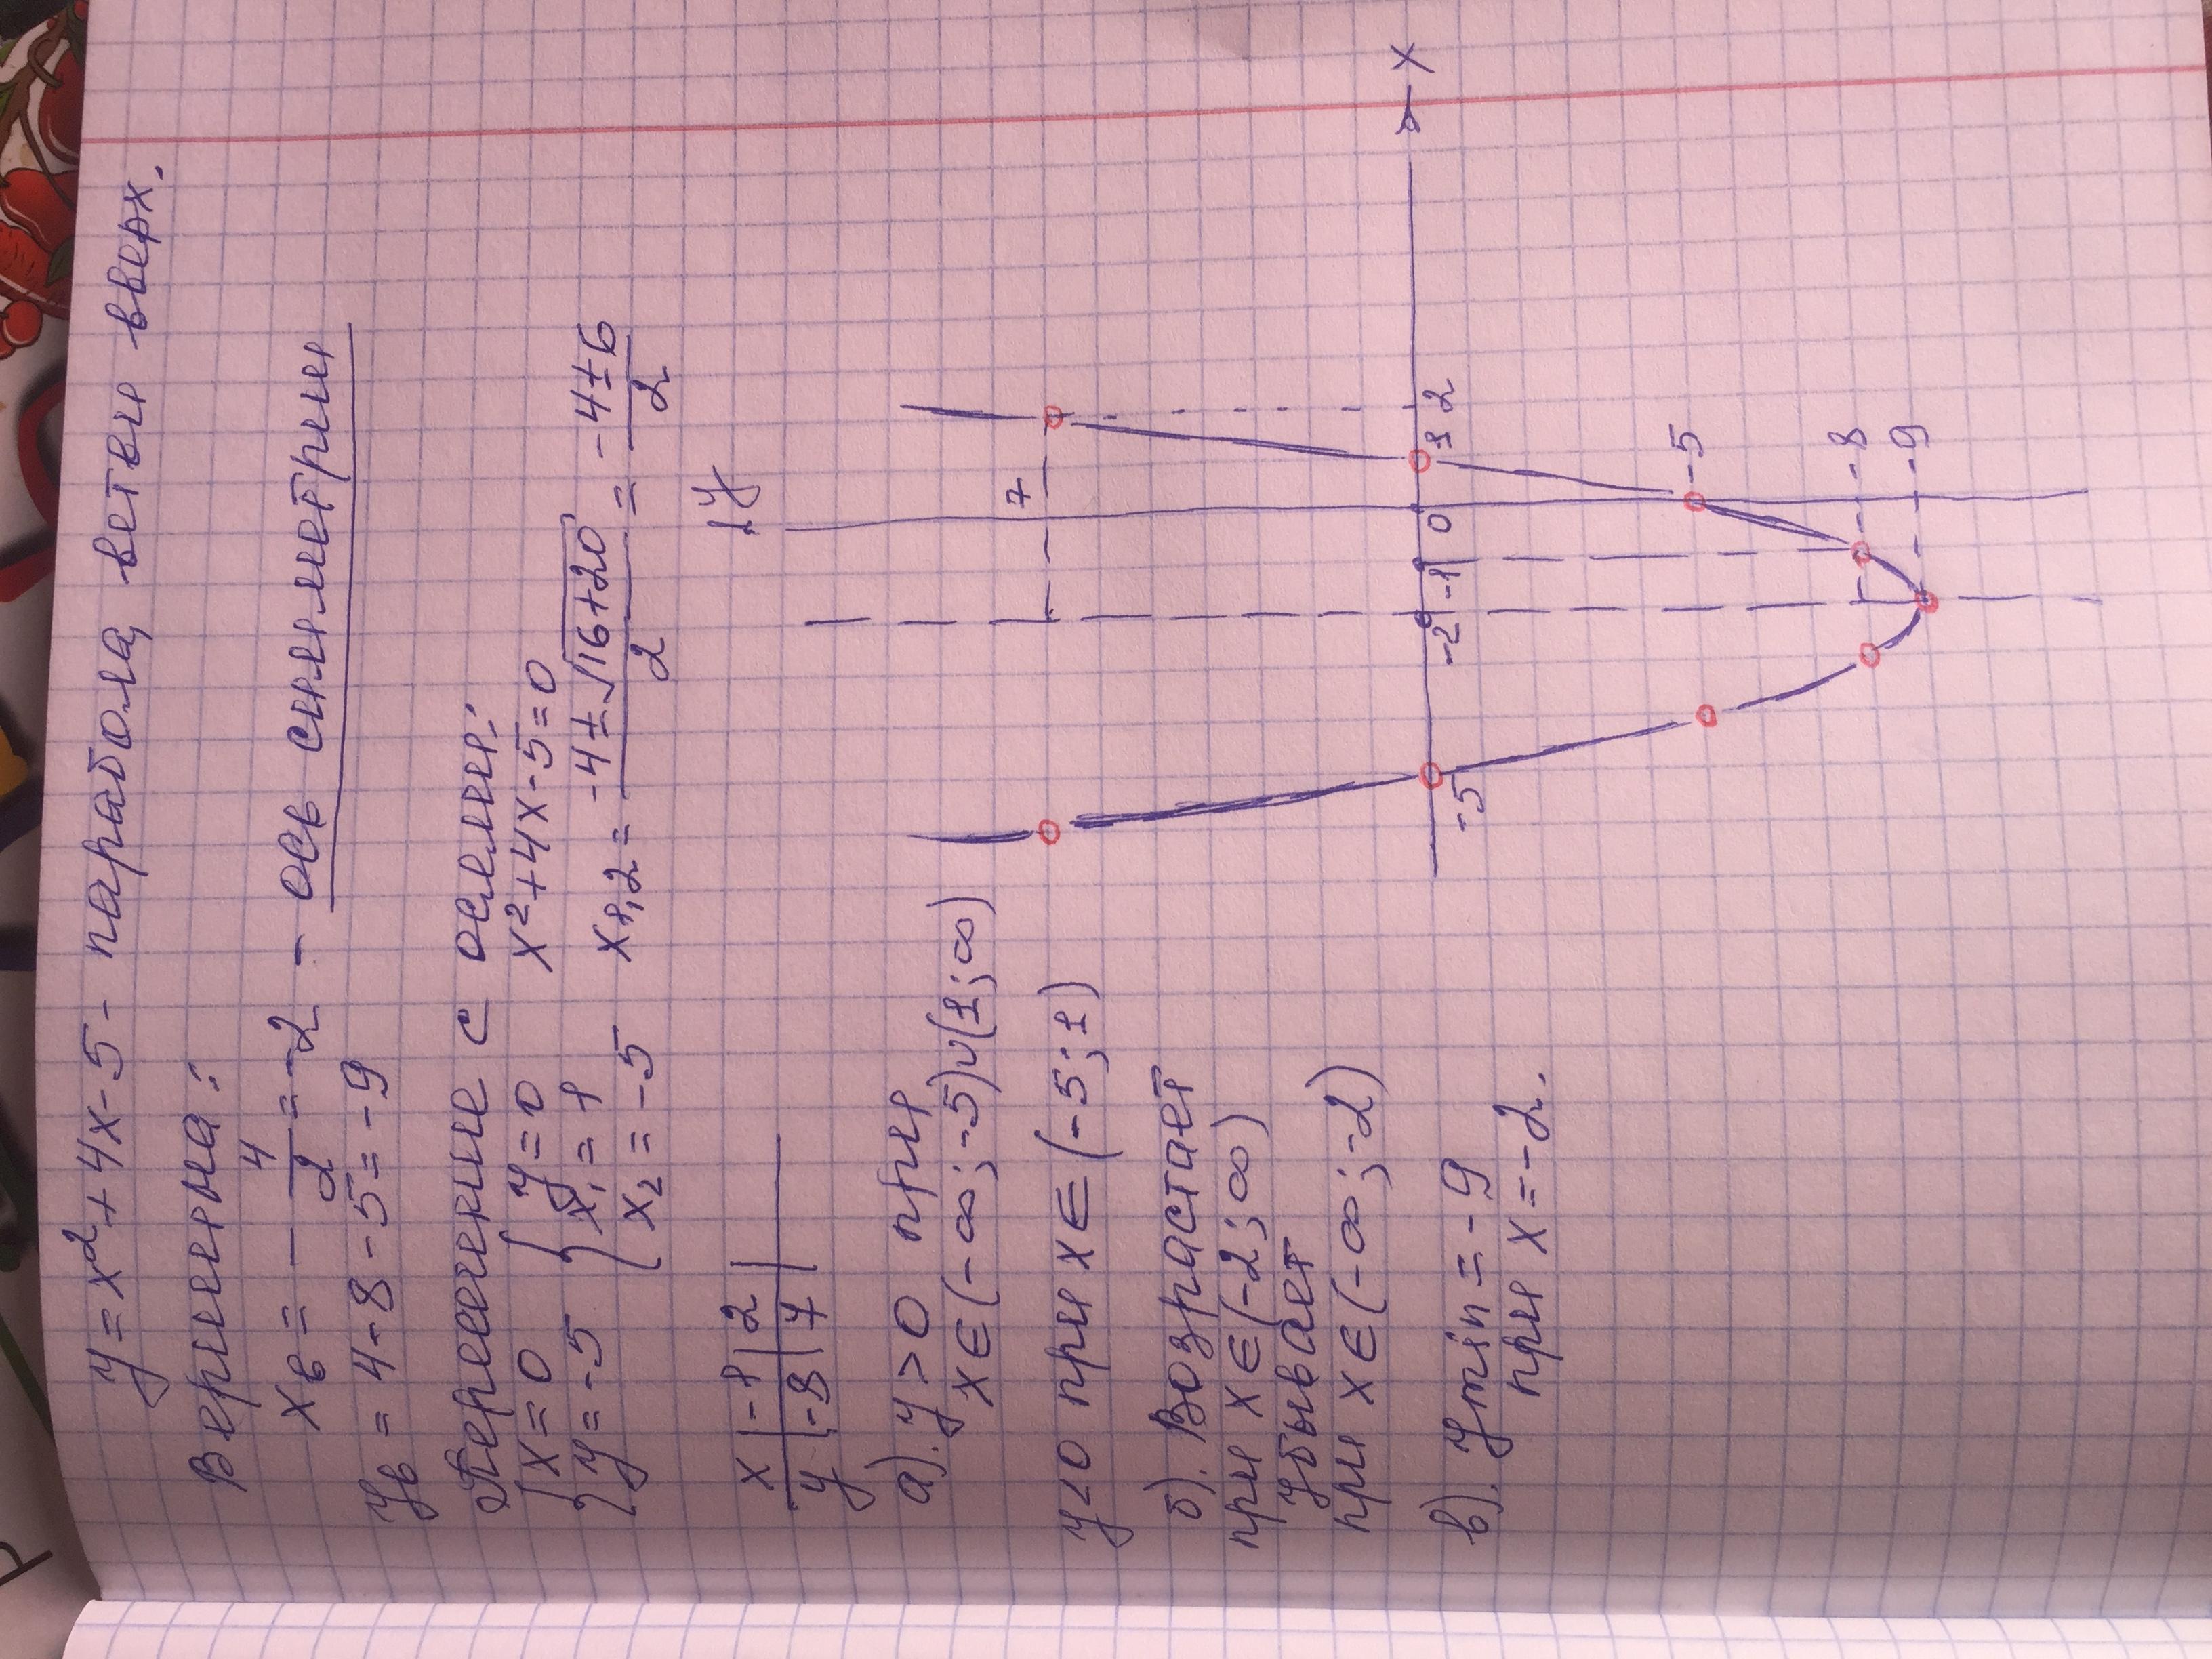 y = x² + 4x - 5 - парабола, ветви вверх.
Вершина:
xв = - 4/2 = -2 - ось симметрии
yв = 4 - 8 - 5 = -9
Пересечение с осями:
{ x = 0 { y = 0 x² + 4x - 5 = 0
{ y = -5 { x₁ = 1
[ x₂ = -5 x₁,₂ = (-4 ± √16+20)/2 = (-4 ± 6)/2
x | -1 | 2 |
y | -8 | 7 |
а). y > 0 при
x ∈ (-∞; -5) ∪ (1; ∞)
y < 0 при x ∈ (-5; 1)
б). Возрастает
при x ∈ (-2; ∞)
убывает
при x ∈ (-∞; -2)
в). ymin = -9
при x = -2.
y
7
-5 -2 -1 0 1 2 x
-5
-8
-9